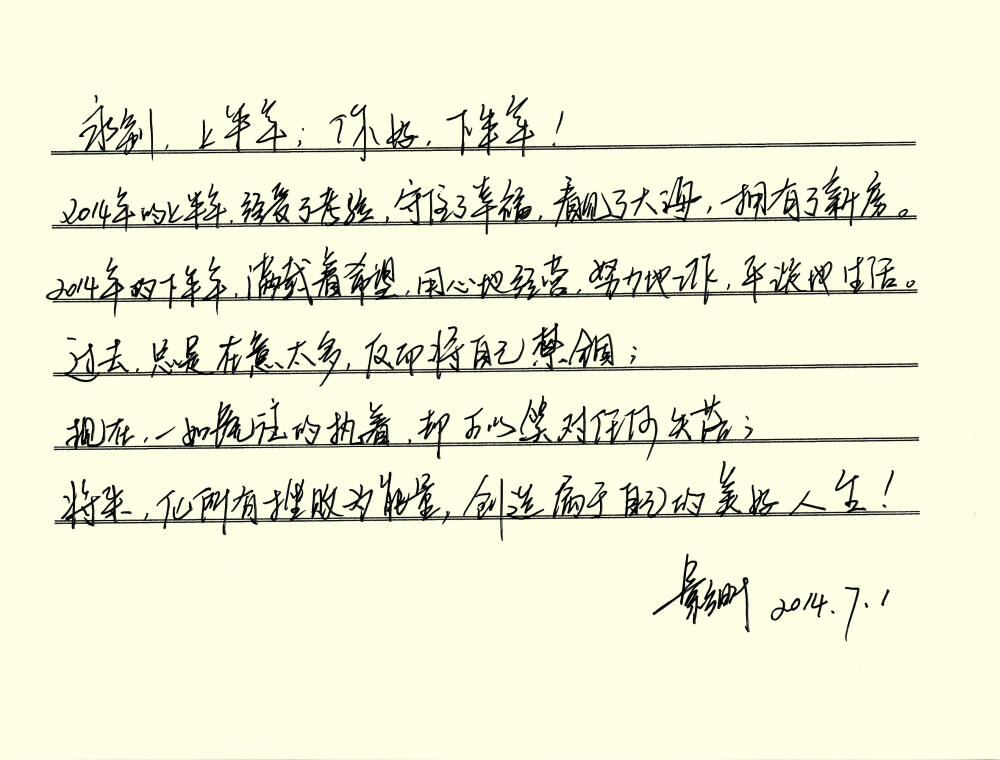 永别，上半年；你好，下半年！
2014年的上半年，经受了考验，守住了幸福，看见了大海，拥有了新房。
2014年的下半年，满载着希望，用心地经营，努力地工作，平淡地生活。
过去，总是在意太多，反而将自己禁锢；
现在，一如既往的执着，却可以笑对任何失落；
将来，化所有挫败为能量，创造属于自己的美好人生！
2014.7.1